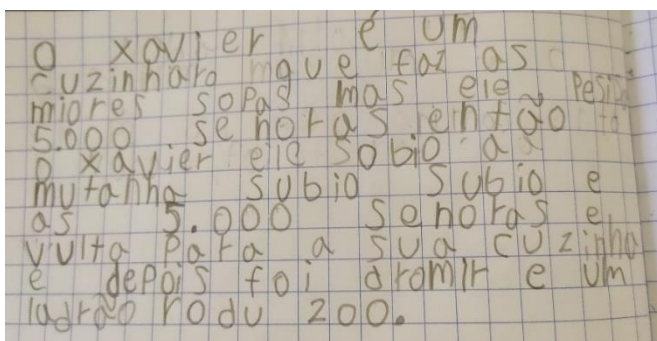 O xavier é um
cuzinharo que faz as
miores sopas mas ele
5.000 senoras então
O xavier ele sobio a
mutanha subio subio e
as 5.000 senoras e
vulta para a sua cuzinha
e depois foi dromir e um
ladrão rodu 200.